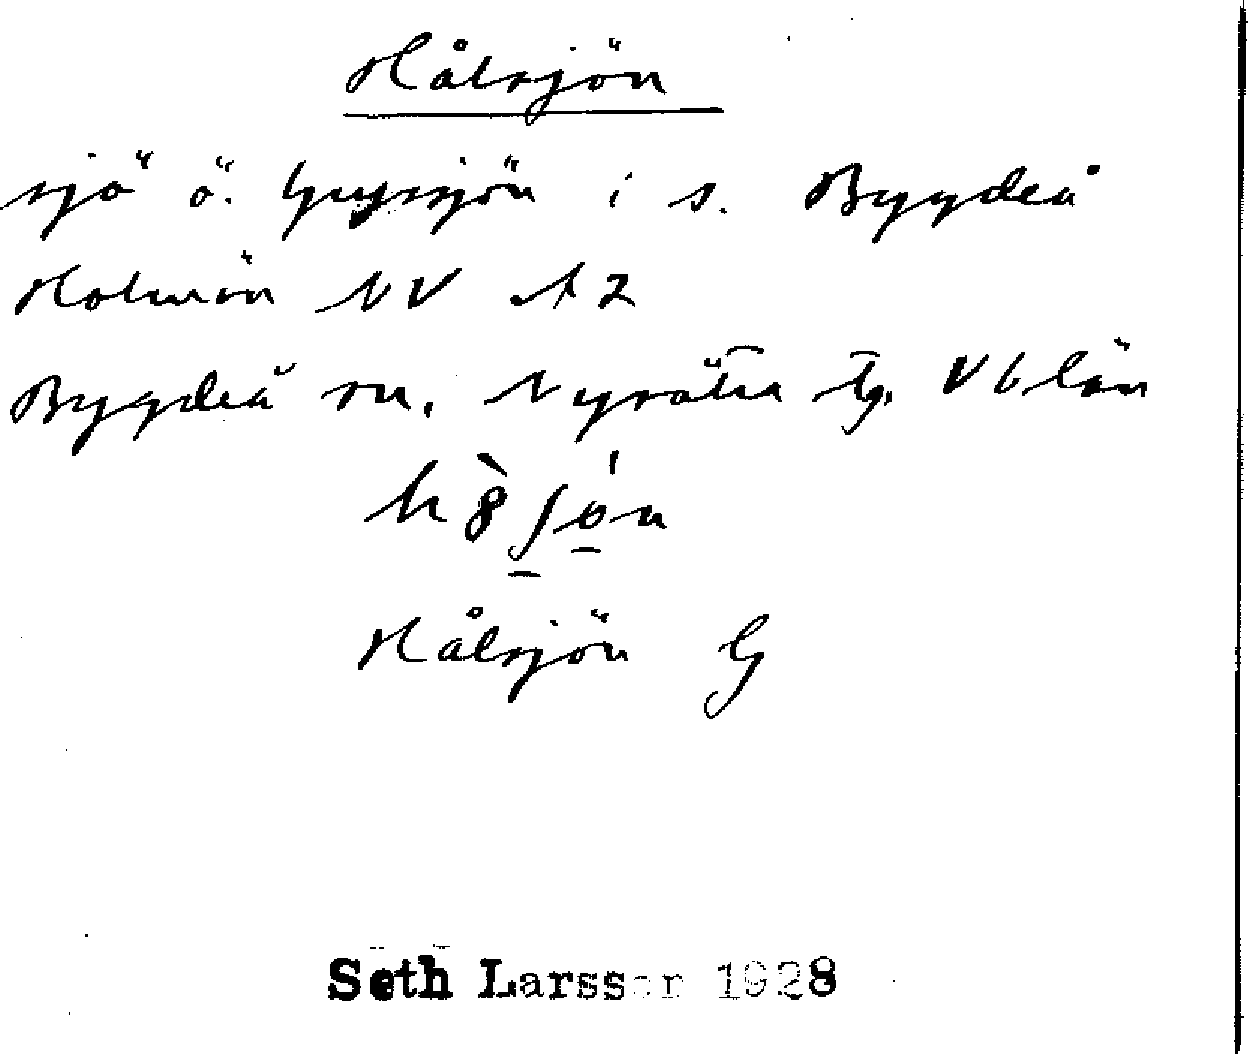 Hålsjön
sjö ö. Gryssjön i s. Bygdeå
Holmön NV A2
Bygdeå sn. Nysätra tg. Vb län
Hålsjön G
Seth Larsson 1928